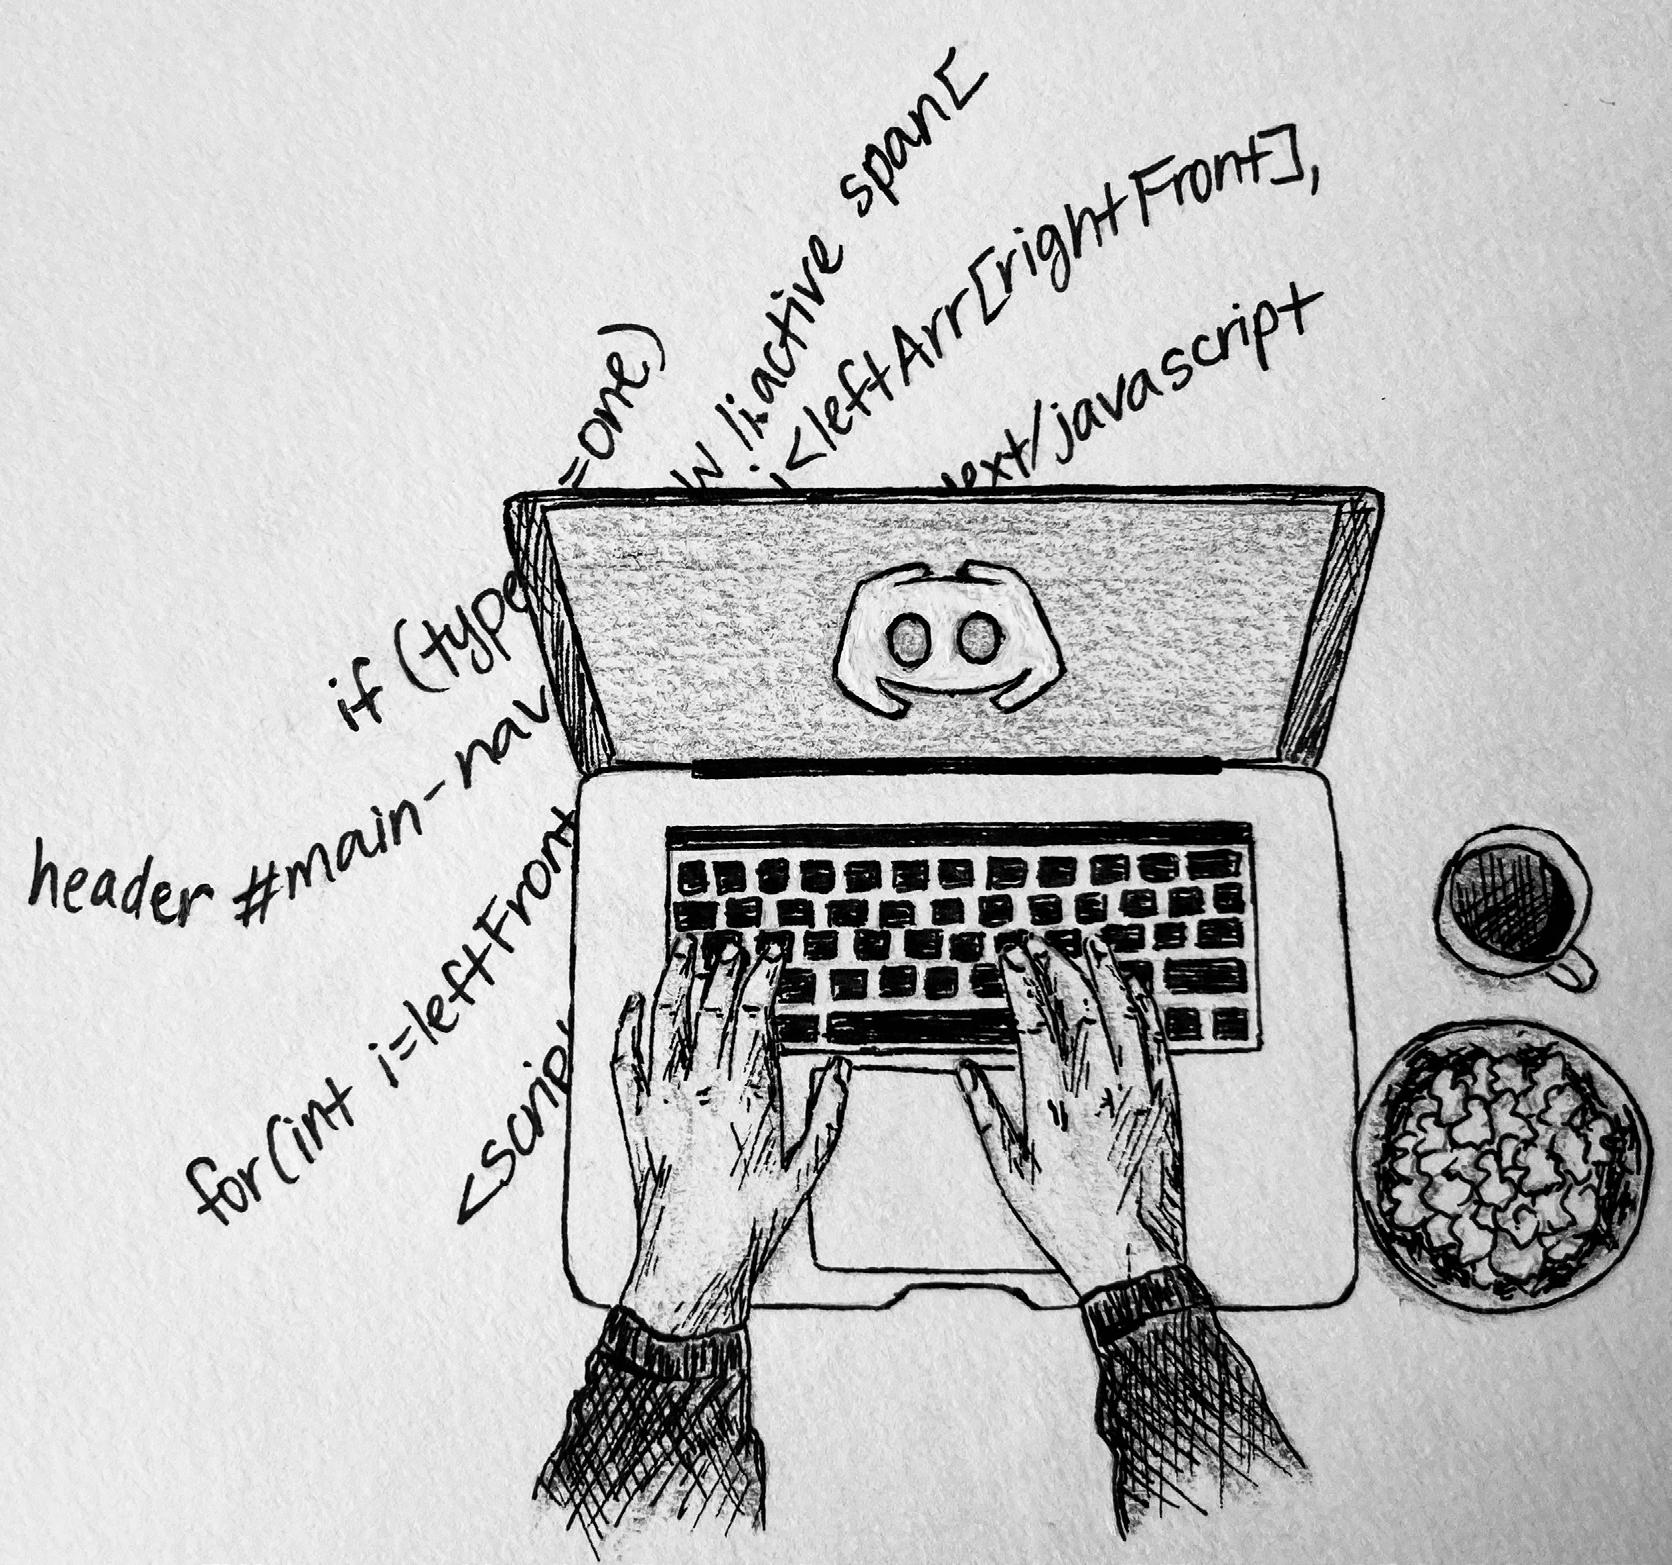 if (type =one)
header #main-nav li:active span[
for(int i=leftFront i<leftArr[rightFront],
<scrip text/javascript